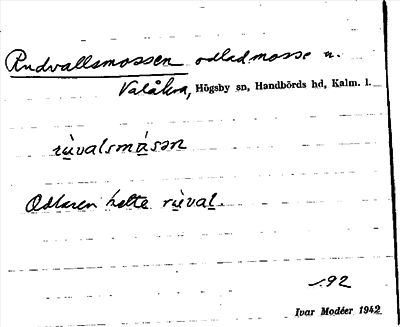 Rudvallsmossen odlad mosse u.
Valåkra, Högsby sn, Handbörds hd, Kalm. l.
rùvalsmåsən
Odlaren hette rùval.
92
Ivar Modéer 1942